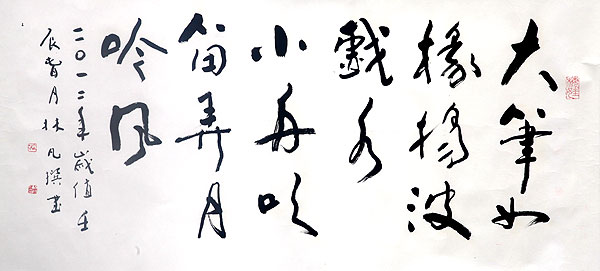 大筆如
椽揚波
戲水
小舟吹
笛弄月
吟风
二〇一二年歲值壬
辰月林凡撰書